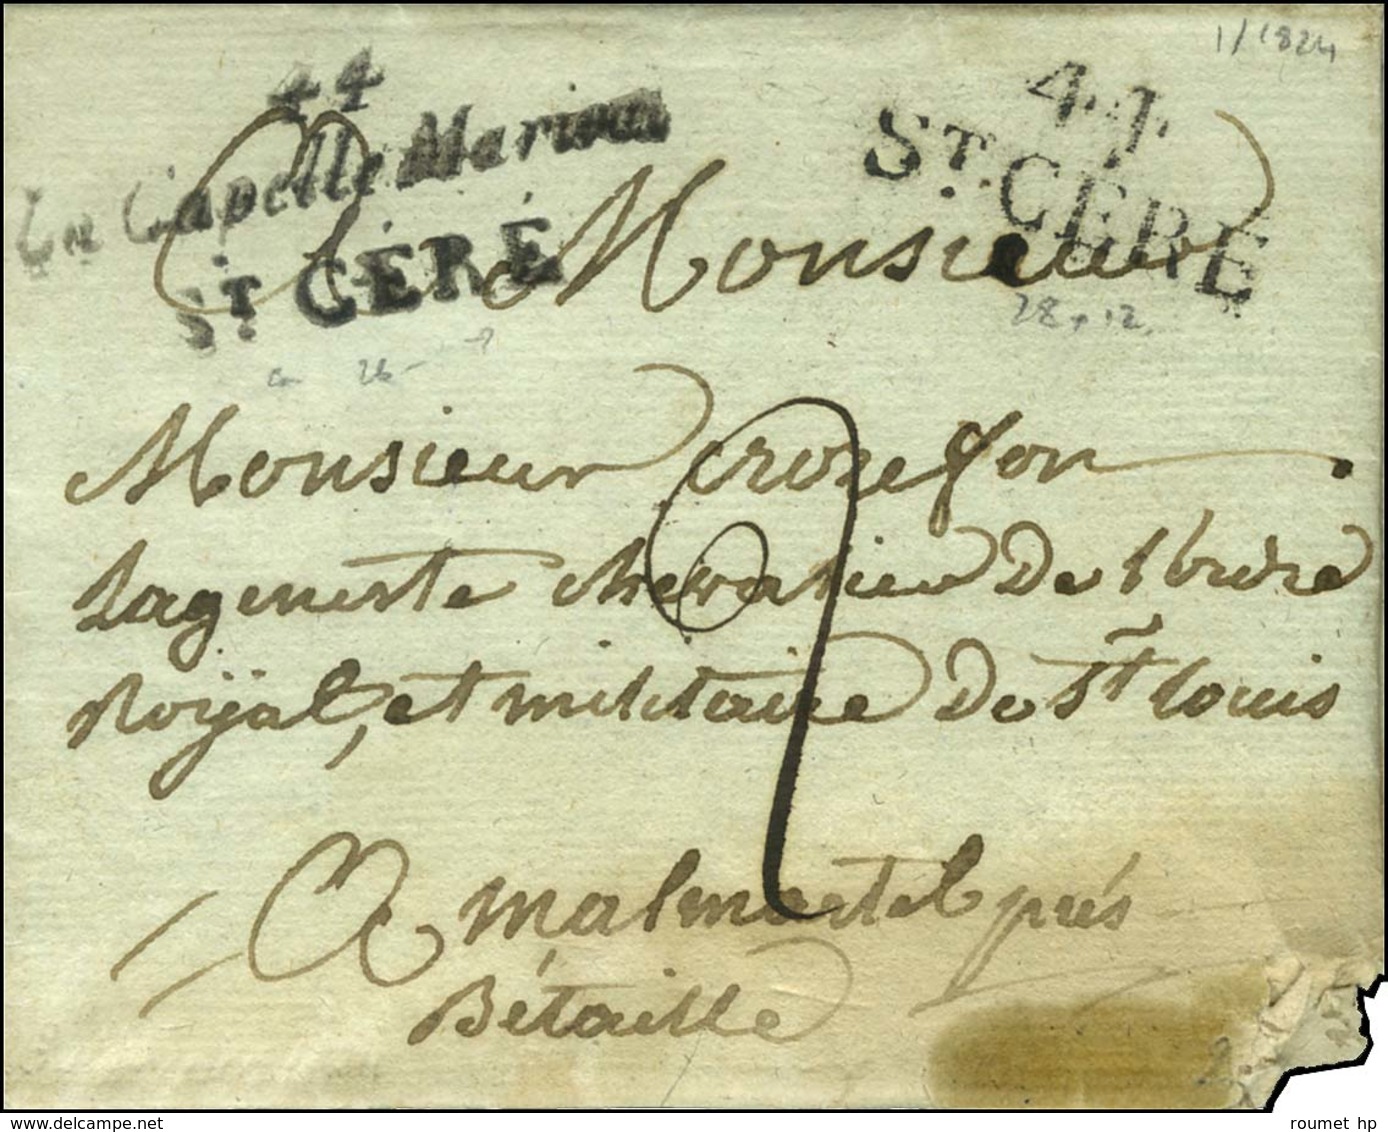 1/1824
44
La Capelle Marival
St CÉRÉ
44
St CÉRÉ
A Monsieur
28 x 12
26
Monsieur Crozefon
Lageneste chevalier De l'ordre
Royal, et militaire De St Louis
2
A malmartel près
Bétaille
roumet hp